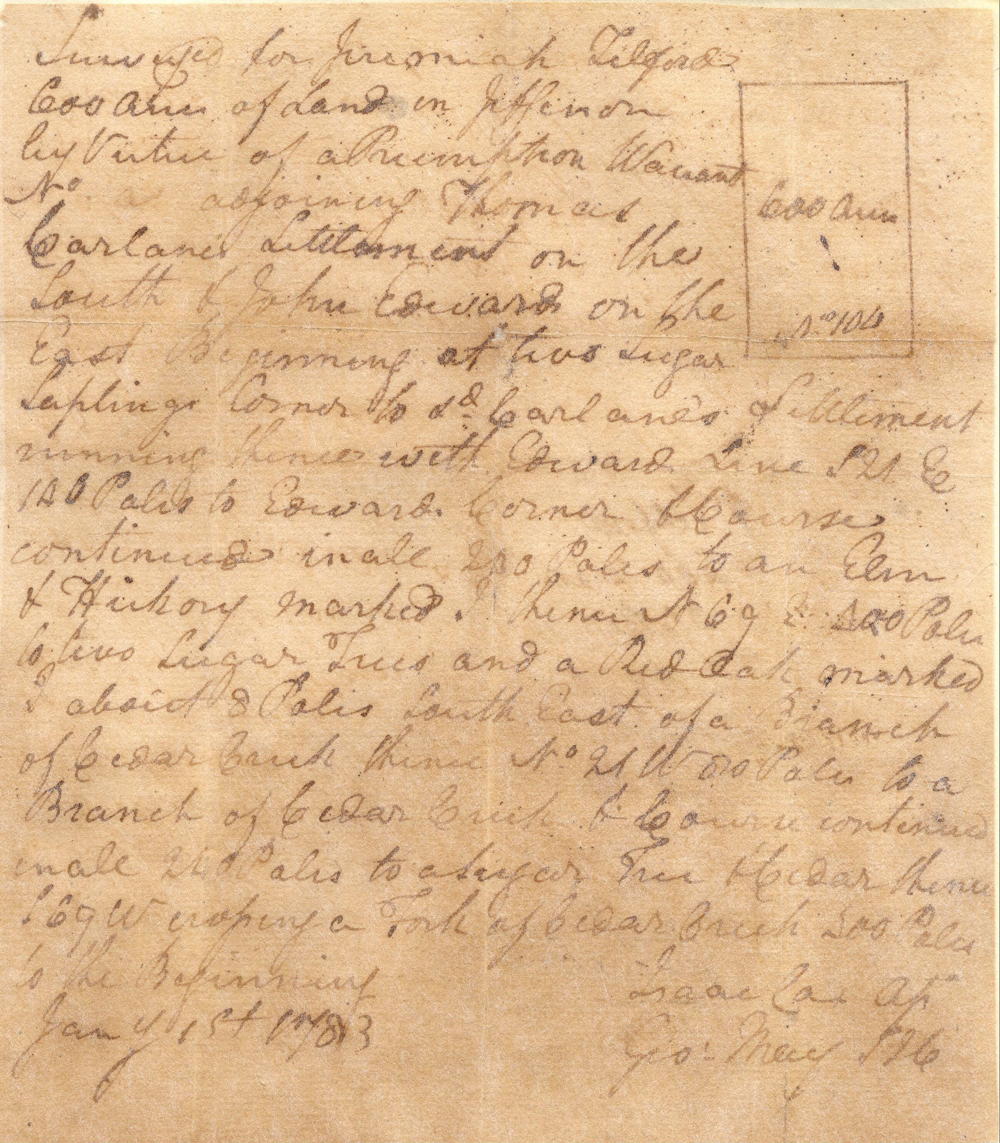 Surveyed for Jeremiah Tilford
600 Acres of Land in Jefferson
by Virtue of a Preemption Warrant
No adjoining Thomas
Carlane's Settlement on the
South & John Edwards on the
East Beginning at two Sugar
Saplings Corner to sd. Carlane's Settlement
running thence with Edwards Line S 21 E
140 Poles to Edwards Corner & Course
continued in all 240 Poles to an Elm
& Hickory marked I thence N 69 E 400 Poles
to two Sugar Trees and a Red Oak marked
I about 8 Poles South East of a Branch
of Cedar Creek thence No 21 W 80 Poles to a
Branch of Cedar Creek & Course continued
in all 240 Poles to a Sugar Tree & Cedar thence
S 69 W croping a Fork of Cedar Creek 400 Poles
to the Beginning
Jany 1st 1783
Isaac Cox As
Geo. May SJC
600 Acres
No 104